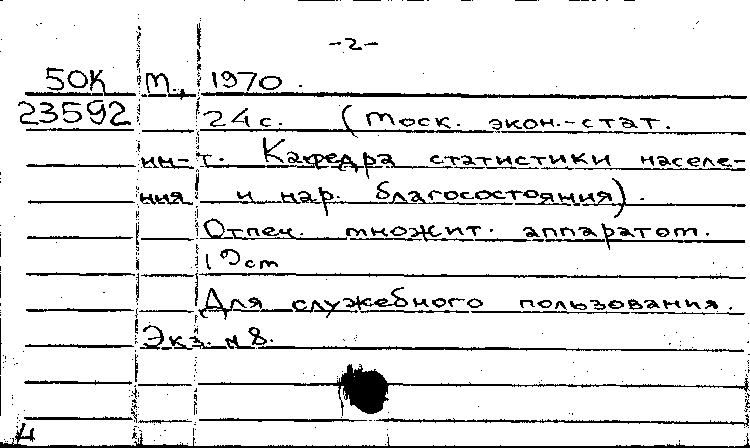 -2-
50К М., 1970.
23592 24с. (Моск. экон.-стат.
ин-т. Кафедра статистики населе-
ния и нар. благосостояния).
Отпеч. множит. аппаратом.
19см
Для служебного пользования.
Экз. № 8.